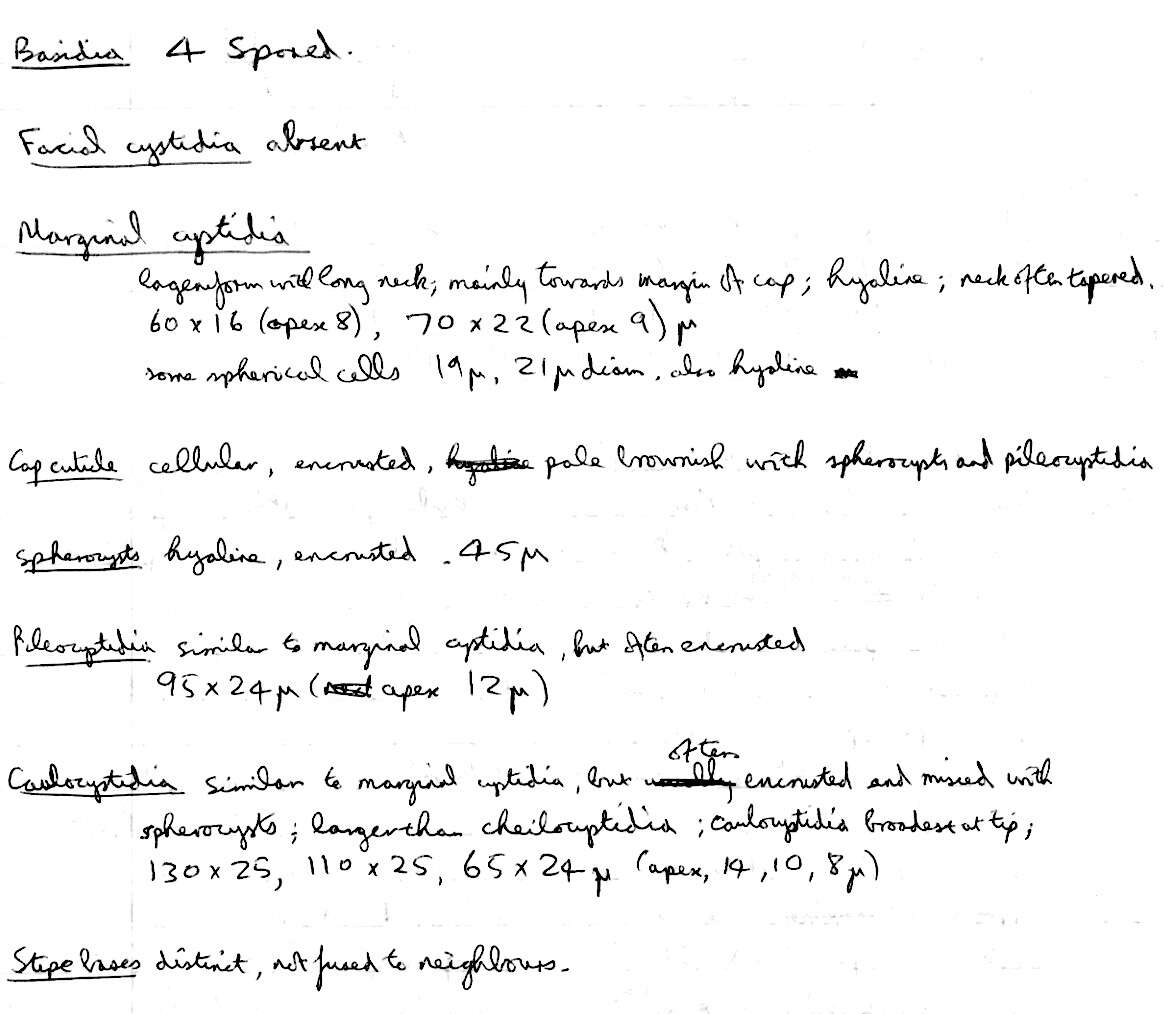 Basidia 4 Spored.
Facial cystidia absent
Marginal cystidia
lageniform with long neck; mainly towards margin of cap; hyaline; neck often tapered.
60 x 16 (apex 8), 70 x 22 (apex 9) μ
some spherical cells 19μ, 21μ diam. also hyaline
Cap cuticle cellular, encrusted, hyaline pale brownish with spherocysts and pileocystidia
spherocysts hyaline, encrusted. 45μ
Pileocystidia similar to marginal cystidia, but often encrusted
95 x 24μ (apex 12μ)
often
Caulocystidia similar to marginal cystidia, but usually encrusted and mixed with
spherocysts; larger than cheilocystidia; caulocystidia broadest at tip;
130 x 25, 110 x 25, 65 x 24 μ (apex, 14, 10, 8μ)
Stipe bases distinct, not fused to neighbours.